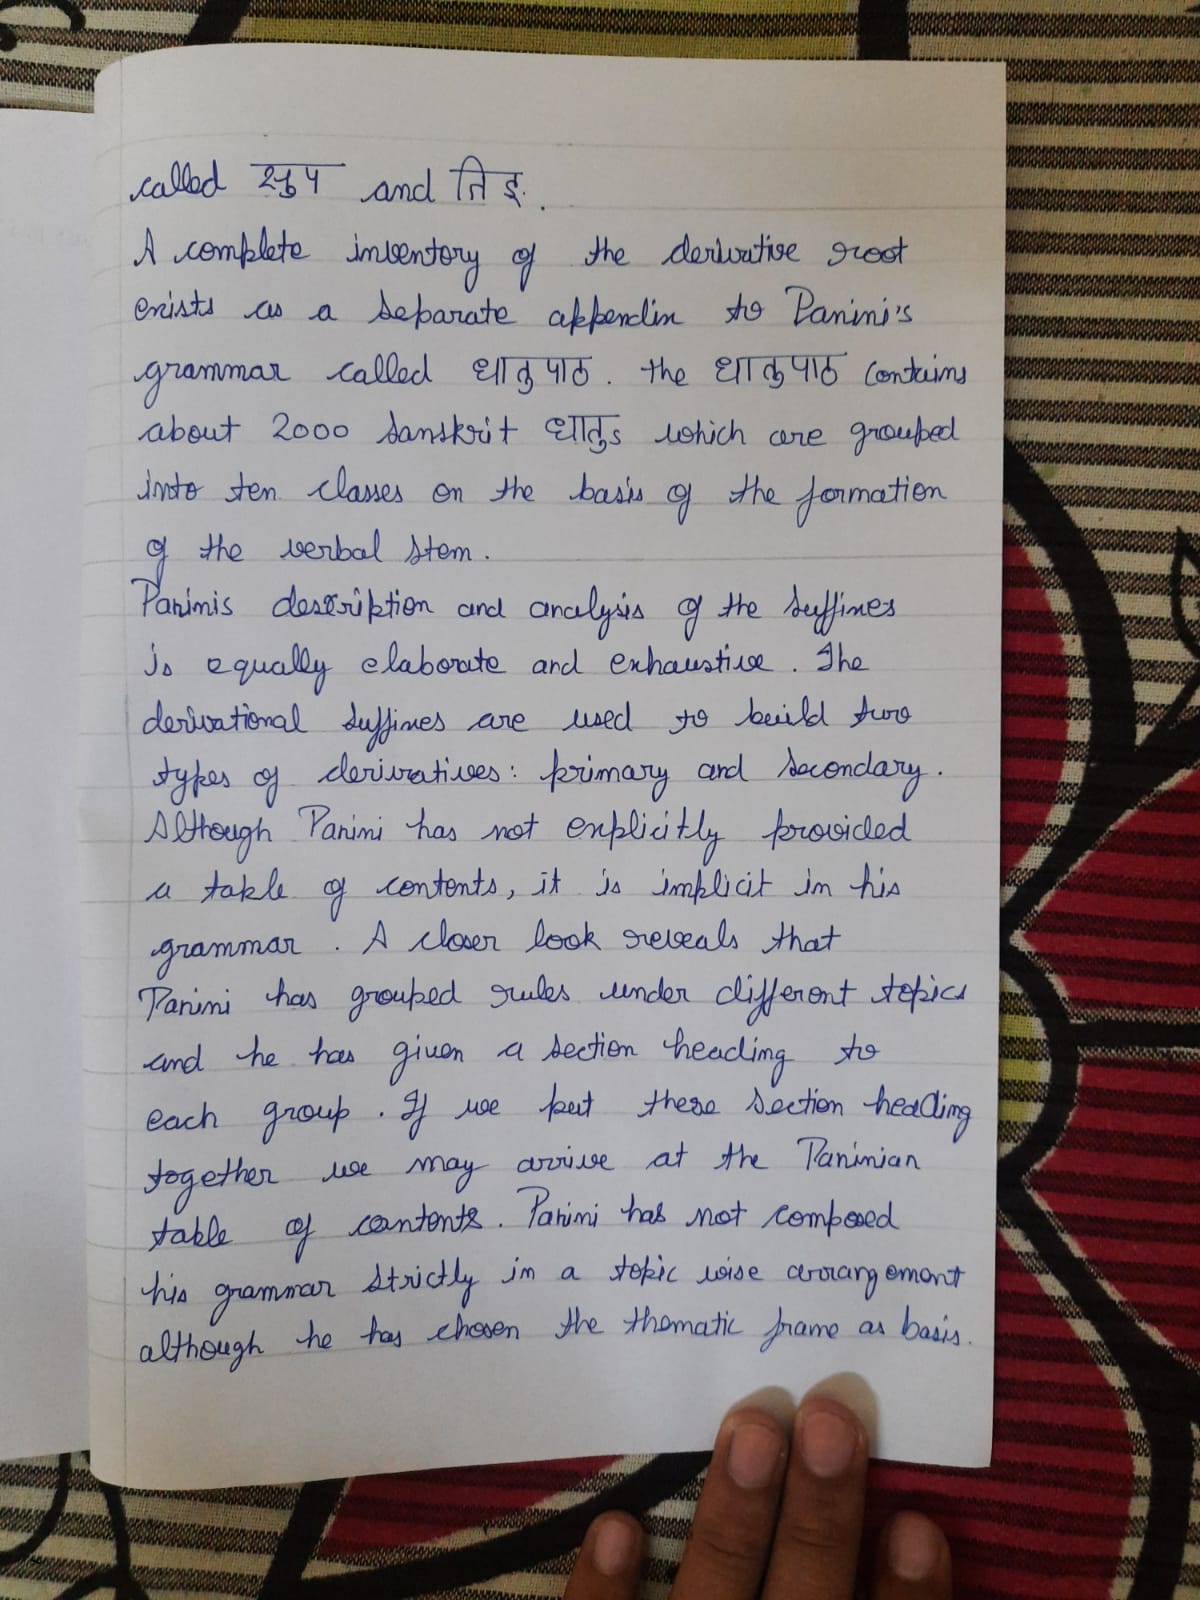 called सुप and तिङ.
A complete inventory of the derivative root
exists as a separate appendix to Panini's
grammar called धातुपाठ. the धातुपाठ contains
about 2000 sanskrit धातुs which are grouped
into ten classes on the basis of the formation
of the verbal stem.
Paninis description and analysis of the suffixes
is equally elaborate and exhaustive. The
derivational suffixes are used to build two
types of derivatives: primary and secondary.
Although Panini has not explicitly provided
a table of contents, it is implicit in his
grammar. A closer look reveals that
Panini has grouped rules under different topics
and he has given a section heading to
each group. If we put these section heading
together we may arrive at the Paninian
table of contents. Panini has not composed
his grammar strictly in a topic wise arrangement
although he has chosen the thematic frame as basis.